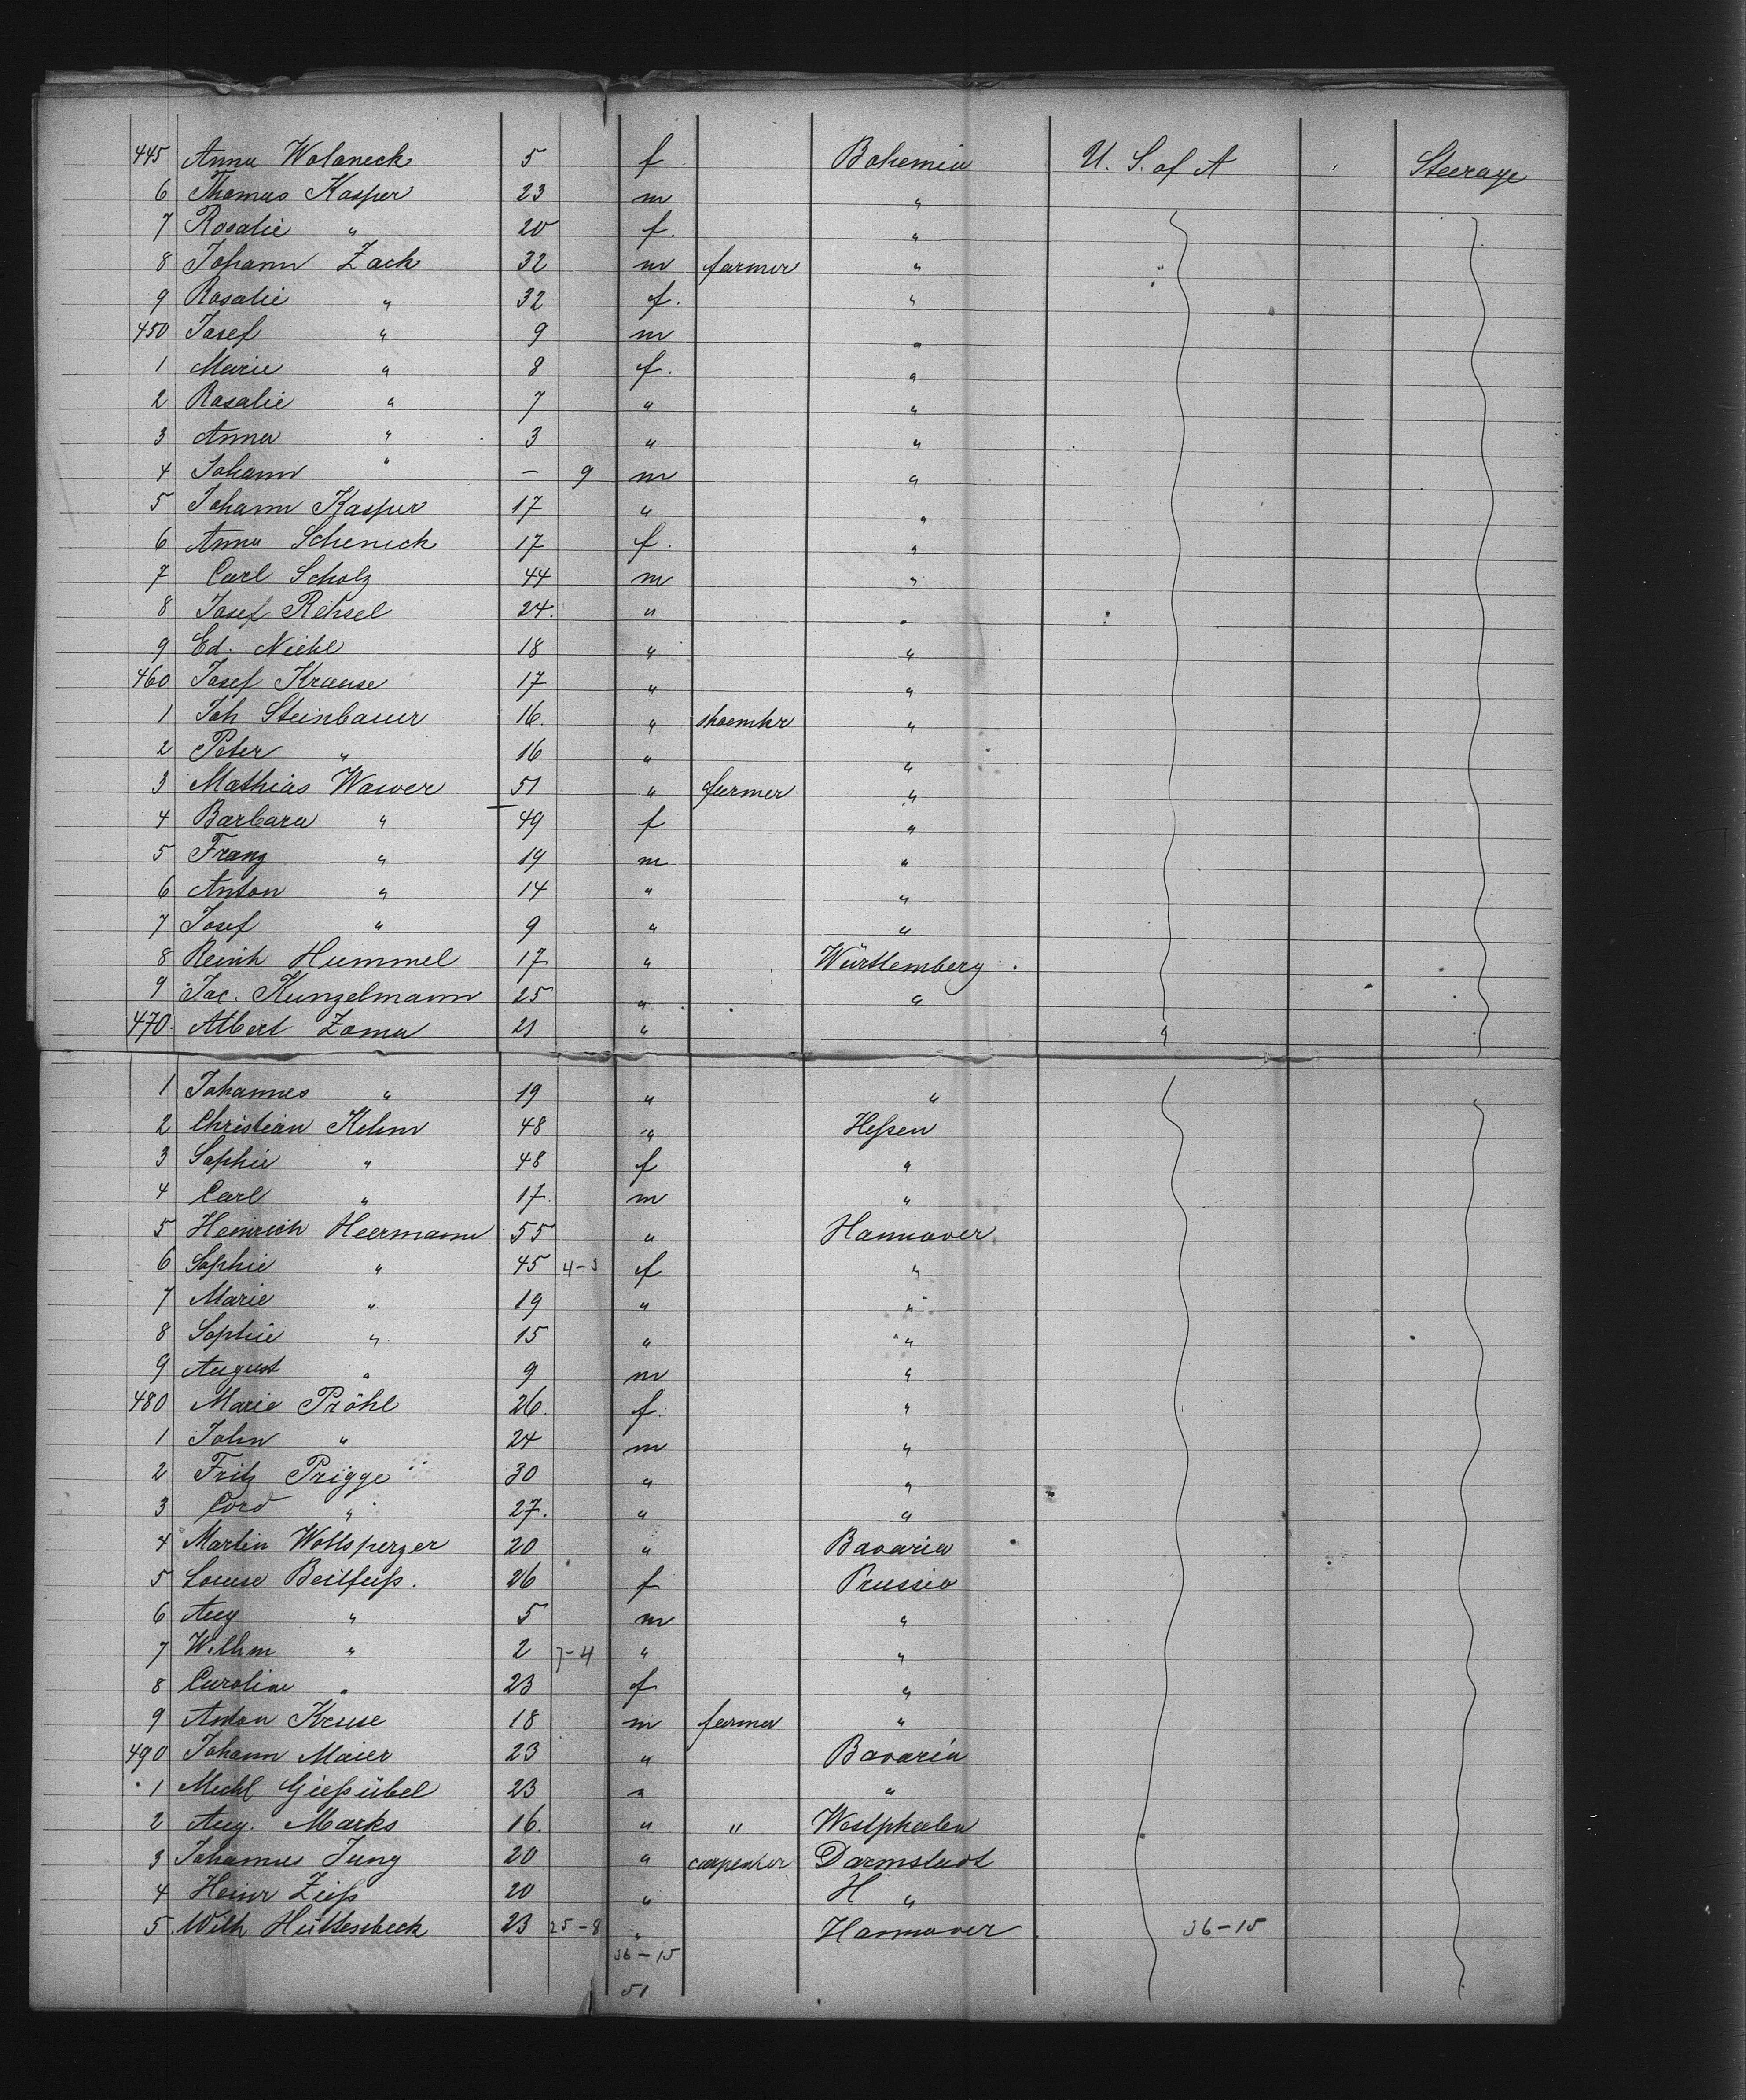 445 Anna Wolaneck 5 f Bohemia U. S. of A Steerage
6 Thomas Kasper 23 m "
7 Rosalie " 20 f. "
8 Johann Zach 32 m farmer "
9 Rosalie " 32 f. "
450 Josef " 9 m "
1 Marie " 8 f. "
2 Rosalie " 7 " "
3 Anna " 3 " "
4 Johann " – 9 m "
5 Johann Kasper 17 " "
6 Anna Scheneck 17 f. "
7 Carl Scholz 44 m "
8 Josef Rehsel 24. " "
9 Ed. Niehl 18 " "
460 Josef Krause 17 " "
1 Joh Steinbauer 16. " shoemkr "
2 Peter " 16 " "
3 Mathias Wawer 51 " farmer "
4 Barbara " 49 f "
5 Franz " 19 m "
6 Anton " 14 " "
7 Josef " 9 " "
8 Reinh Hummel 17 " Württemberg
9 Jac. Kunzelmann 25 " "
470. Albert Zoma 21 " "
1 Johannes " 19 " "
2 Christian Kehm 48 " Heßen
3 Sophie " 48 f "
4 Carl " 17. m "
5 Heinrich Heermann 55 " Hannover
6 Sophie " 45 4-5 f "
7 Marie " 19 " "
8 Sophie " 15 " "
9 August " 9 m "
480 Marie Pröhl 26. f. "
1 John " 24 m "
2 Fritz Prigge 30 " "
3 Cord " 27. " "
4 Martin Wollsperger 20 " Bavaria
5 Louise Beilfuß. 26 f Prussia
6 Aug " 5 m "
7 Wilhm " 2 7-4 " "
8 Caroline " 23 f "
9 Anton Kruse 18 m farmer "
490 Johann Maier 23 " Bavaria
1 Michl Gießübel 23 " "
2 Aug. Marks 16. " " Westphalen
3 Johannes Jung 20 " carpenter Darmstadt
4 Heinr Zieß 20 " H "
5 Wilh Hüttesbeck 23 25-8 " Hannover 36-15
36-15
51